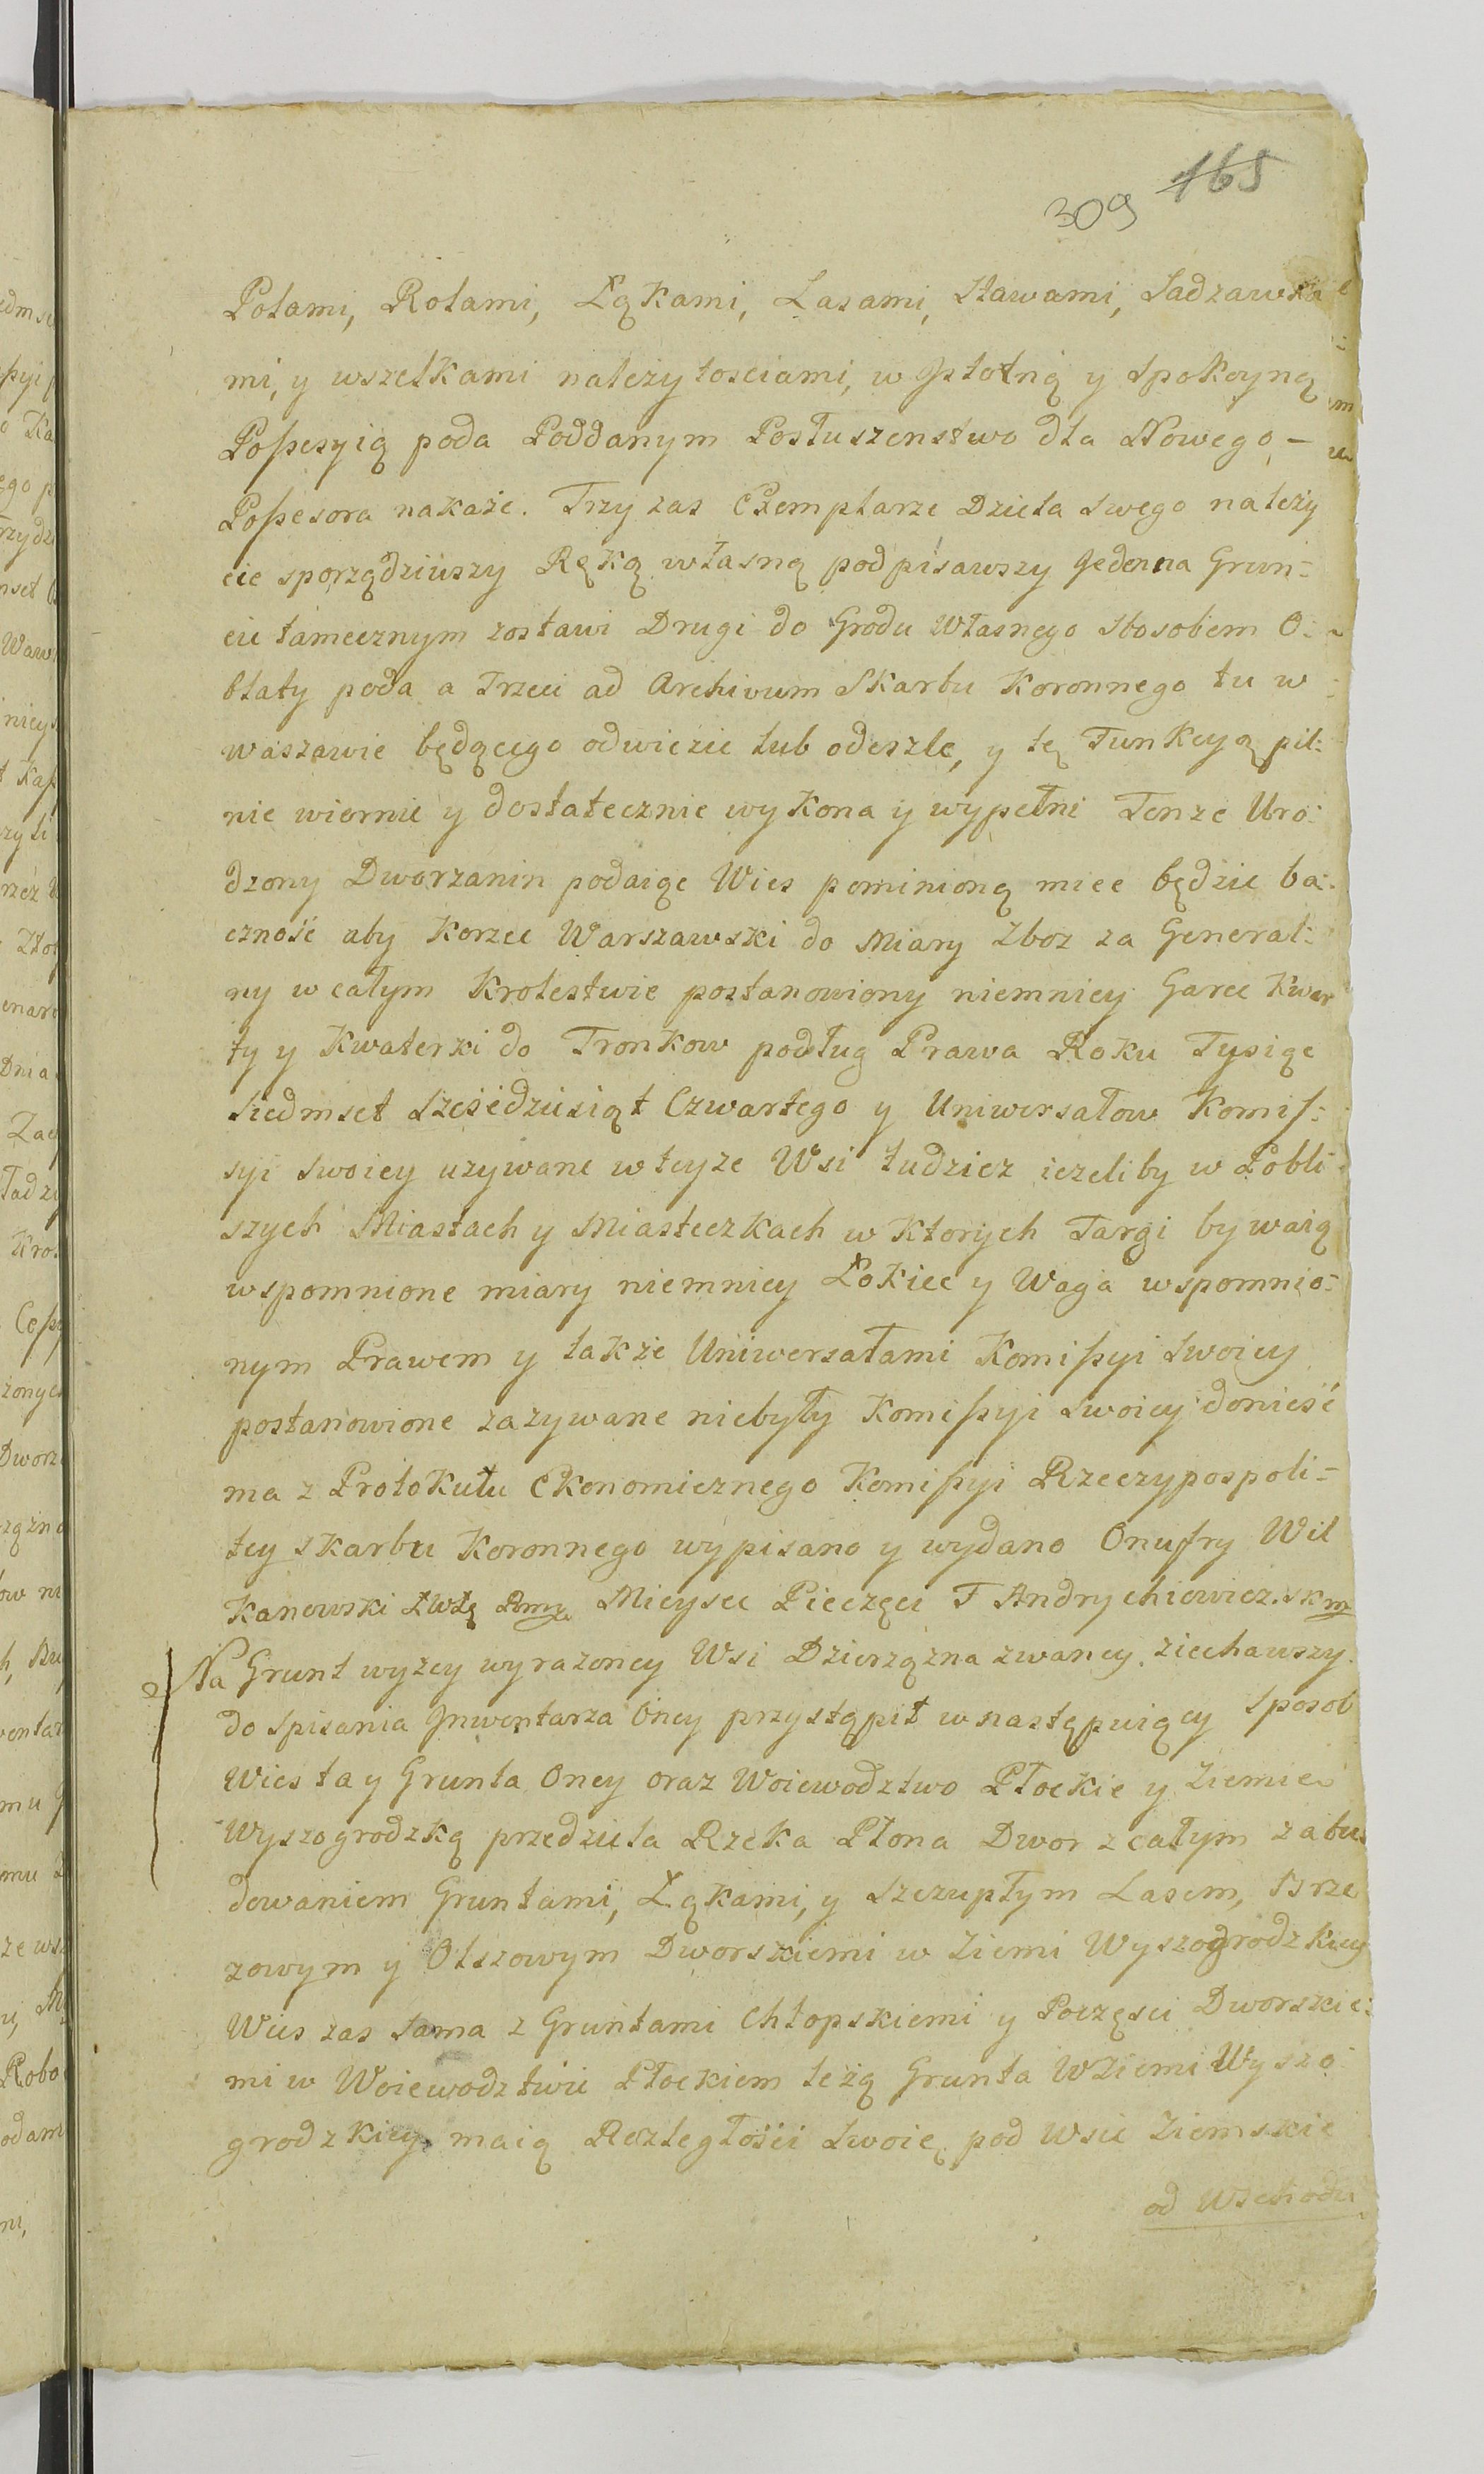 165
309
Polami, Rolami, Łąkami, Lasami, Stawami, Sadzawka
mi, y wszelkami należytosciami, w Jstotną y Spokoyną
Poßesyią poda Poddanym Posłuszenstwo dla Nowego –
Poßesora nakaże. Trzy zas Exemplarze Dzieła Swego należy
cie sporządziwszy Ręką własną podpisawszy Jeden na Grun:
cie tamecznym zostawi Drugi do Grodu Własnego Sposobem O:
blaty poda a Trzeci ad Archivum Skarbu Koronnego tu w
waszawie będącego odwiezie lub odeszle, y tę Funkcyą pil:
nie wiernie y dostatecznie wykona y wypełni Tenze Uro:
dzony Dworzanin podaiąc Wies pominioną miec będzie ba:
czność aby Korzec Warszawski do Miary Zboz za General:
ny w całym Krolestwie postanowiony niemniey Garce Kwar
ty y Kwaterki do Tronkow podług Prawa Roku Tysiąc
Siedmset Sześćdziesiąt Czwartego y Uniwersałow Komis:
syi Swoiey uzywane w teyze Wsi tudziez ieżeliby w Pobli
szych Miastach y Miasteczkach w Ktorych Targi bywaią
wspomnione miary niemniey Łokiec y Waga wspomnio:
nym Prawem y także Uniwersałami Komißyi Swoiey
postanowione zazywane niebyły Komißyi Swoiey donieść
ma z Protokułu Ekonomicznego Komißyi Rzeczypospoli:
tey Skarbu Koronnego wypisano y wydano Onufry Wil
Kanowski Mieysce Pieczęci F Andrychiewicz. Skm
Na Grunt wyzey wyrazoney Wsi Dzierzązna zwaney ziechawszy
do Spisania Jnwentarza Oney przystąpił w następuiący Sposob
Wies ta y Grunta Oney oraz Woiewodztwo Płockie y Ziemie
Wyszogrodzką przedziela Rzeka Płona Dwor z całym zabu
dowaniem Gruntami, Łąkami, y Szczupłym Lasem, Brze
zowym y Olszowym Dworskiemi w Ziemi Wyszogrodzkiey
Wies zas sama z Gruntami Chłopskiemi y Poczęsci Dworskie:
mi w Woiewodztwie Płockiem leżą Grunta w Ziemi Wyszo
grodzkiey maią Rozległości Swoie pod Wsie Ziemskie
od Wschodu